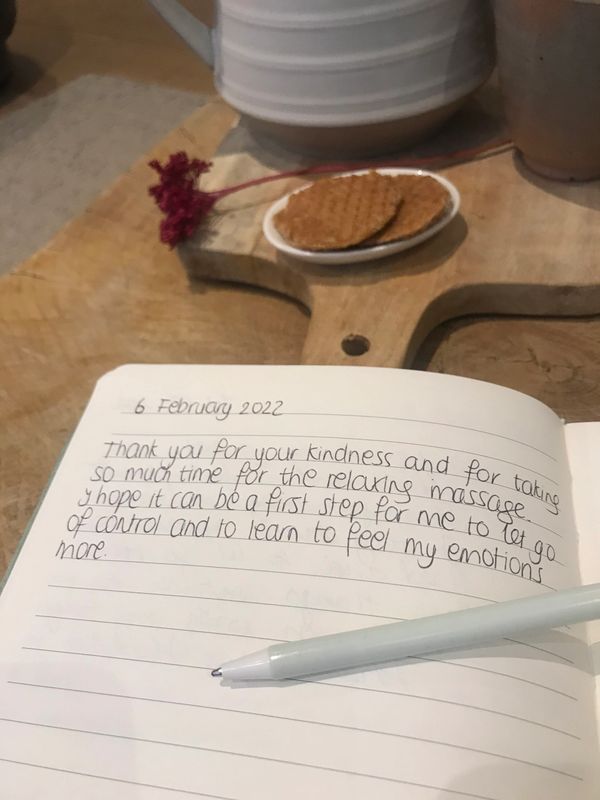 6 February 2022
Thank you for your kindness and for taking
so much time for the relaxing massage.
I hope it can be a first step for me to let go
of control and to learn to feel my emotions
more.